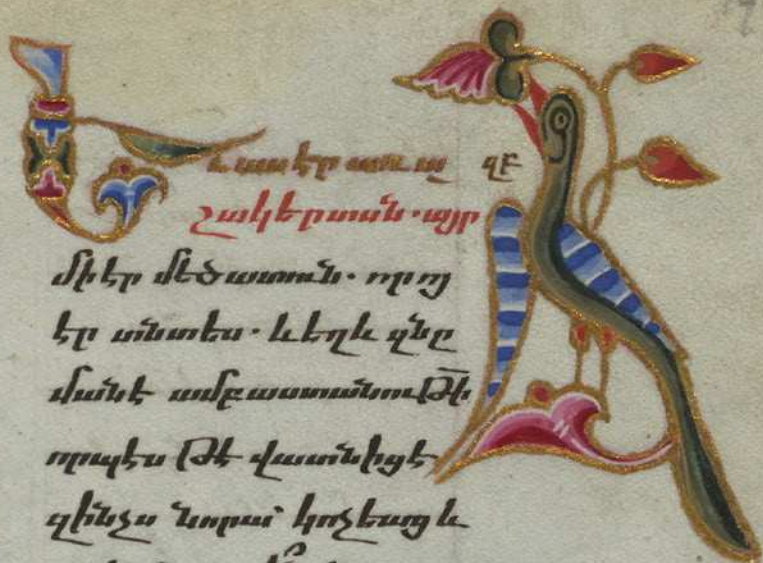 Եւ ասէր առ ա զբ
շակերտսն. այր
մի էր մեծատուն. որոյ
էր տնտես. և եղև զնը
մանէ ամբաստանութի՟
որպէս թէ վատնիցէ
զինչս նորա՝ կոչեաց և